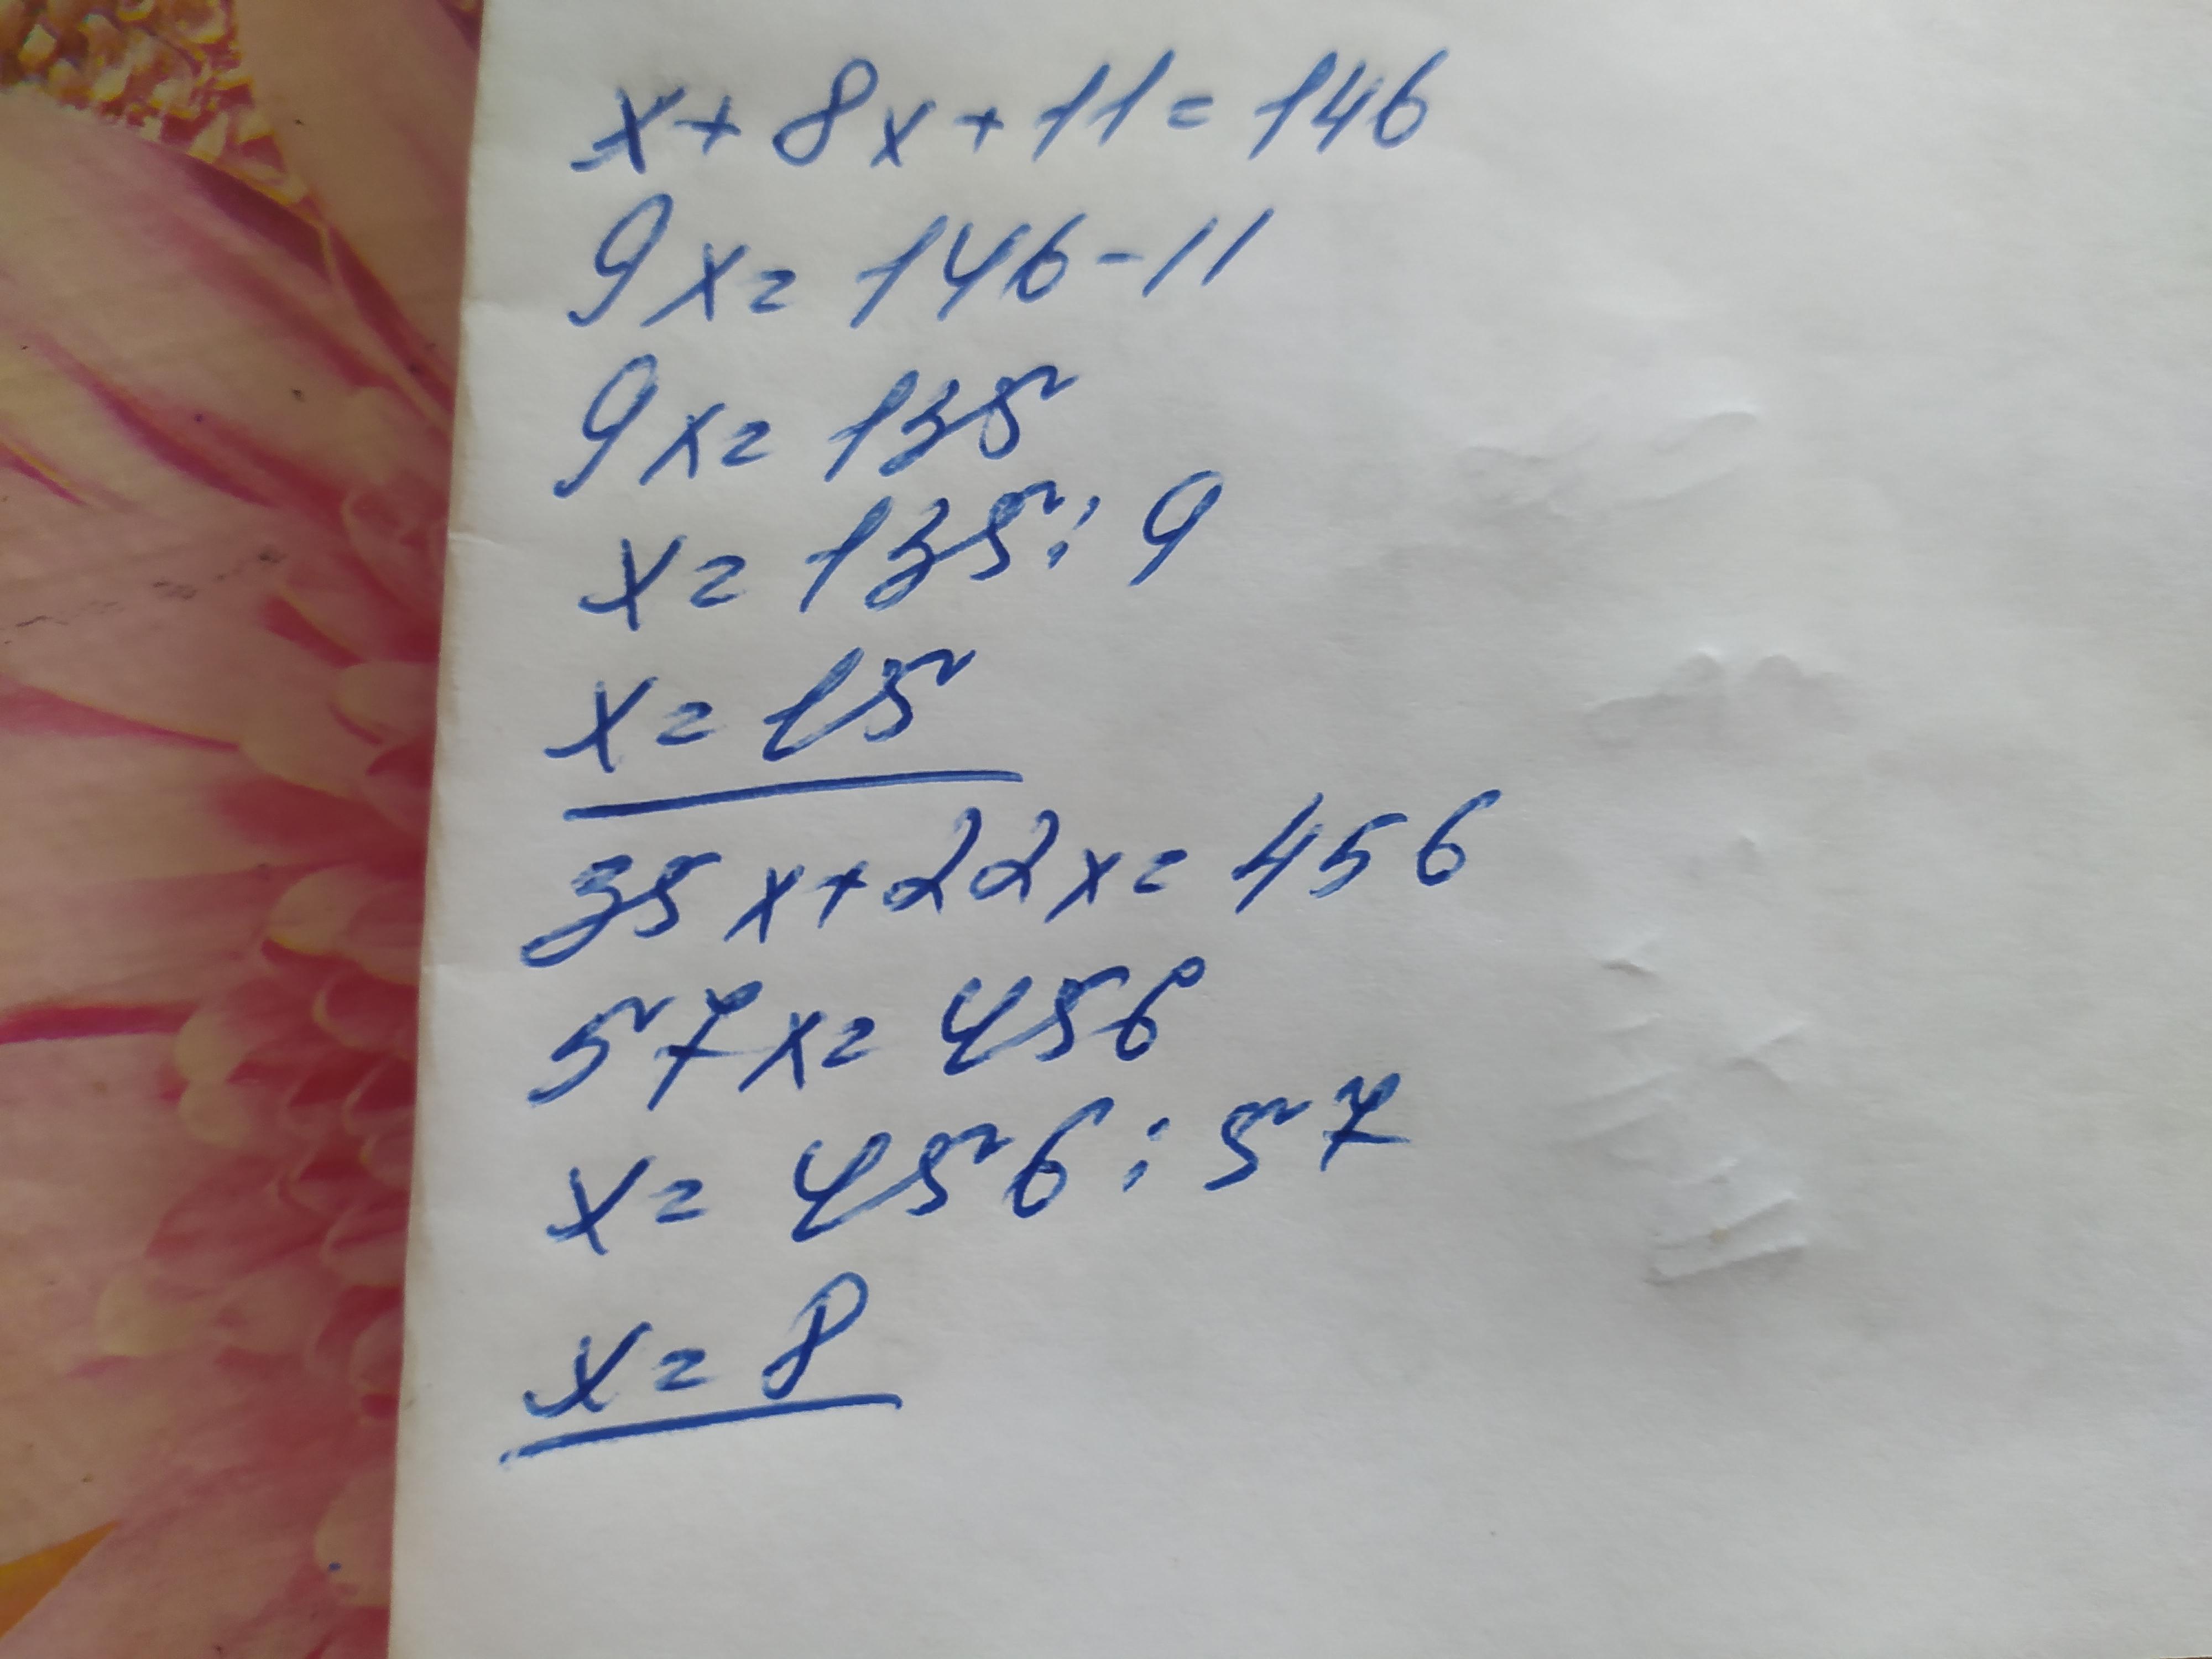 x+8x+11=146
9x=146-11
9x=135
x=135:9
x=15
35x+22x=456
57x=456
x=456:57
x=8